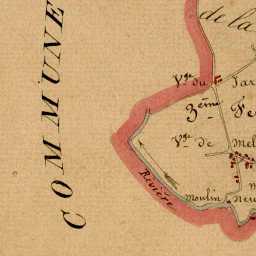 COMMUNE
de la
Vge du
3ème Fe
Vge de Mel
Rivière
Moulin Neu